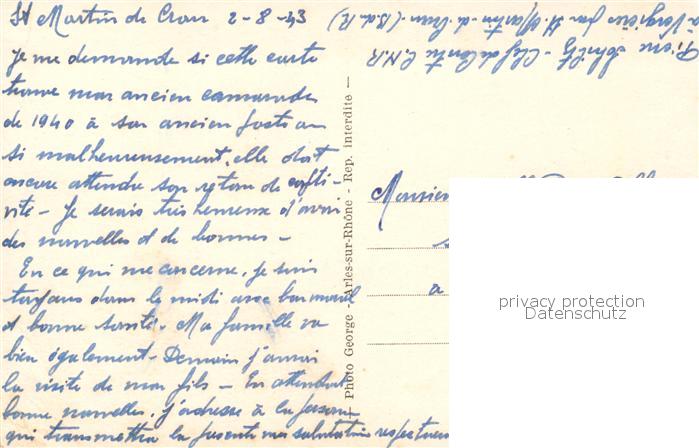 St Martin de Crau 2-8-43
Je me demande si cette carte
trouve mon ancien camarade
de 1940 à son ancien poste ou
si malheureusement, elle doit
encore attendre son retour de capti-
vité - Je serais très heureux d'avoir
des nouvelles et de bonnes -
En ce qui me concerne, je suis
toujours dans le midi avec bon moral
et bonne santé. Ma famille va
bien également - Demain j'aurai
la visite de mon fils - En attendant
bonne nouvelles, j'adresse à la personne
qui transmettra la présente mes salutations respectueu
Photo George - Arles-sur-Rhône - Rep. interdite -
Pierre Chef de C.N.R
à par St Martin-de-Crau (B.d.R)
Monsieur
à
privacy protection
Datenschutz